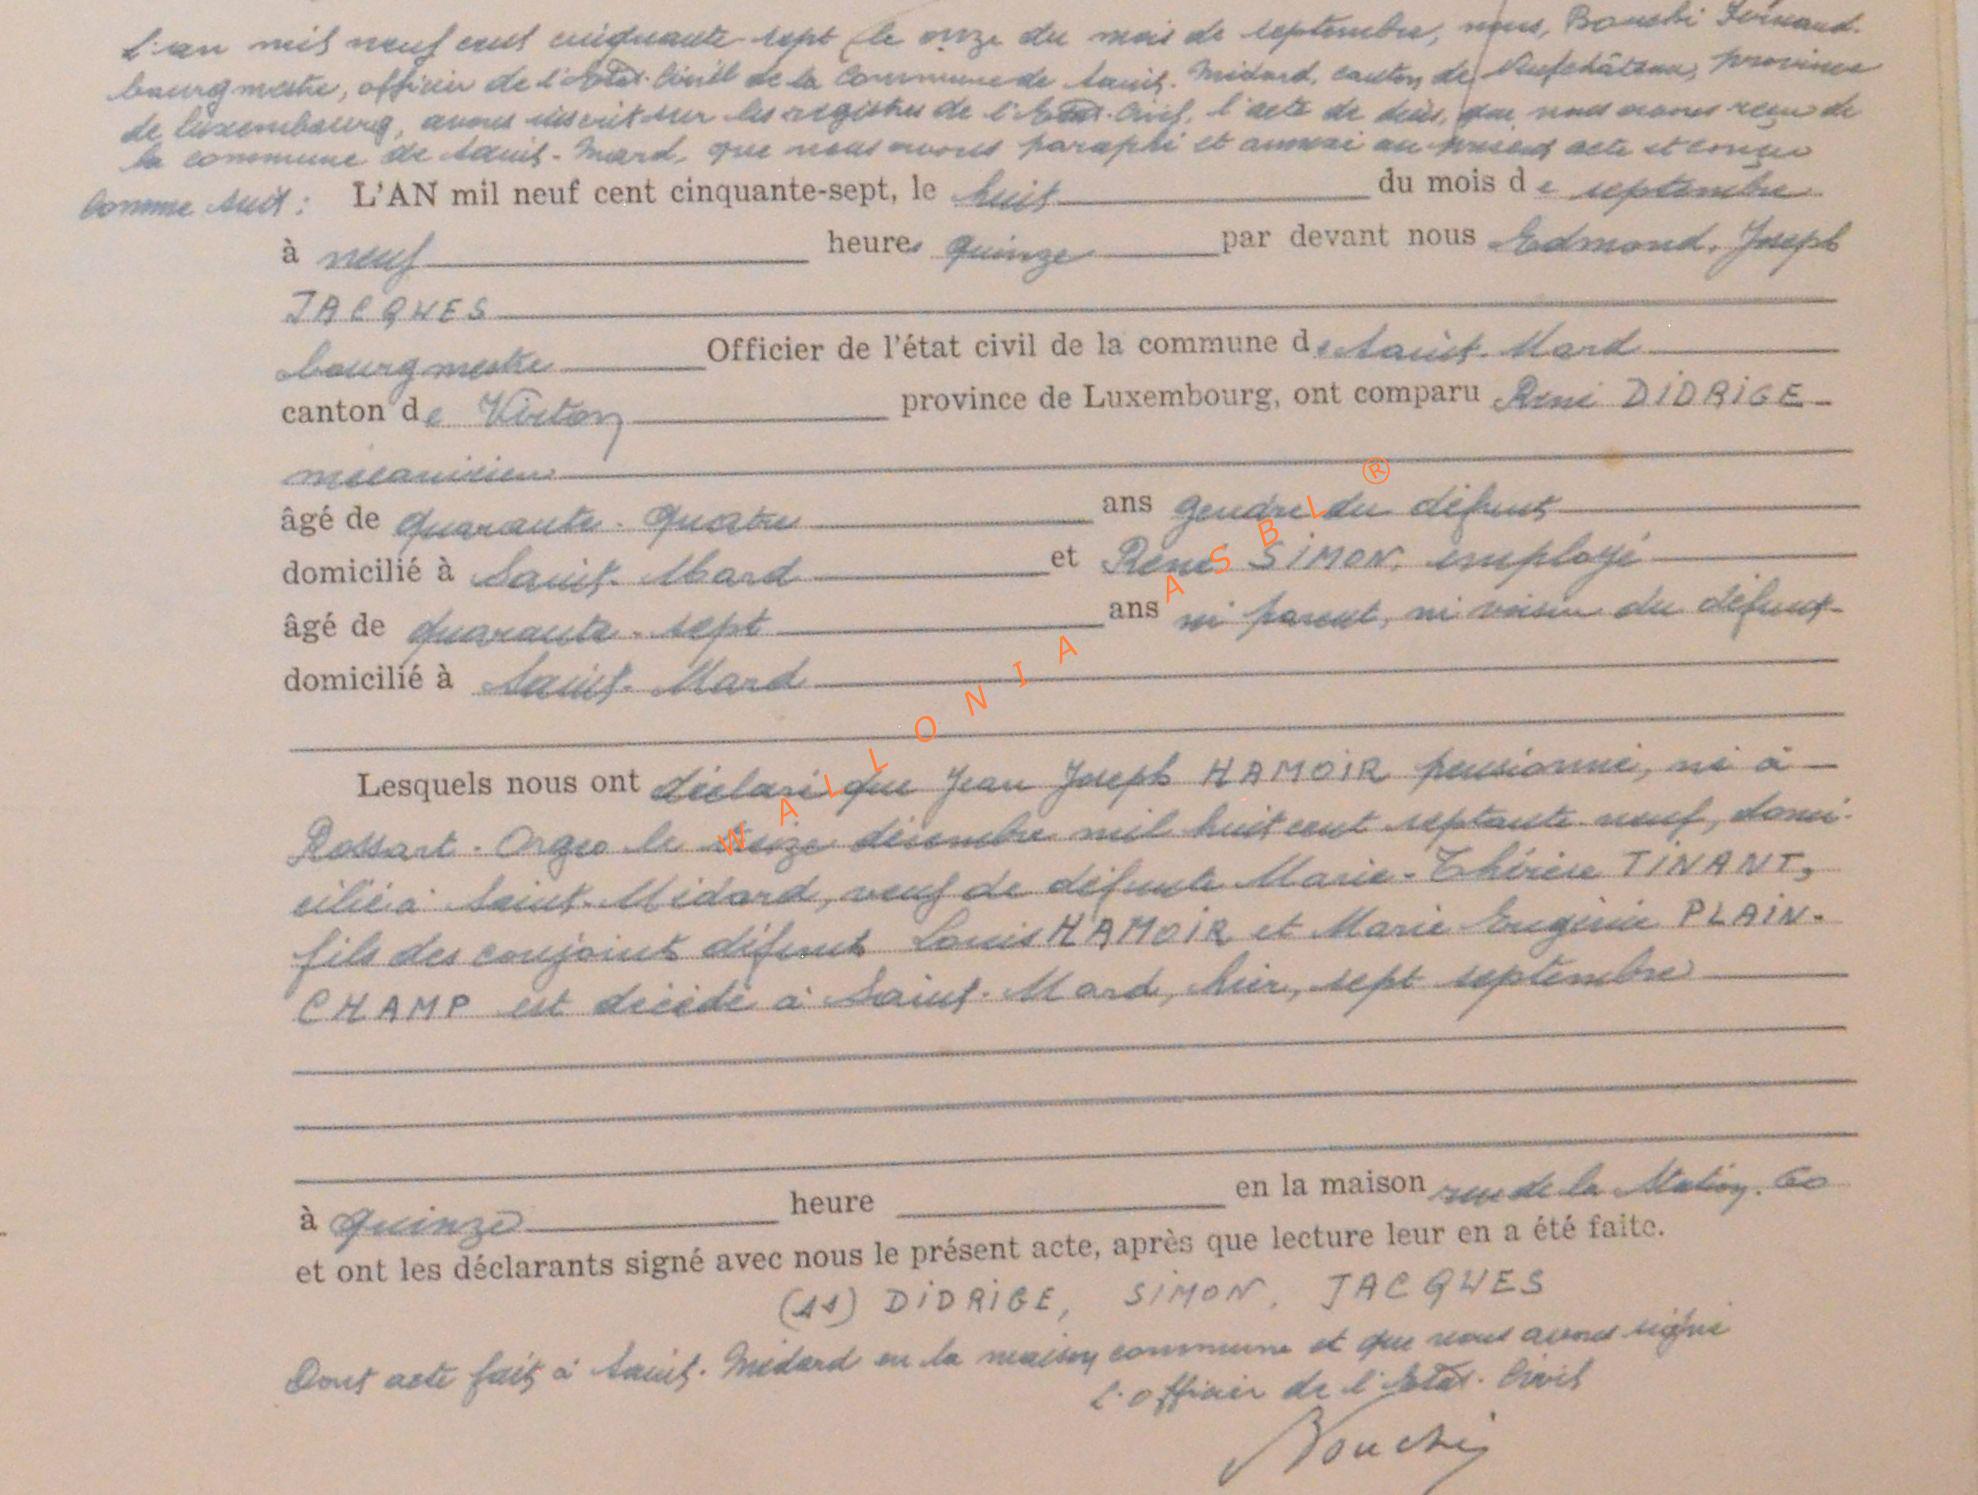 L'an mil neuf cent cinquante-sept le onze du mois de septembre, nous, Bouchi Fernand
bourgmestre, officier de l'Etat-Civil de la Commune de Saint-Médard, canton de Neufchâteau, province
de Luxembourg, avons inscrit sur les registres de l'Etat-Civil, l'acte de décès, que nous avons reçu de
la commune de Saint-Mard, que nous avons paraphé et annexé au présent acte et conçu
comme suit : L'AN mil neuf cent cinquante-sept, le huit du mois de septembre
à neuf heures quinze par devant nous Edmond, Joseph
JACQUES
bourgmestre Officier de l'état civil de la commune de Saint-Mard
canton de Virton province de Luxembourg, ont comparu René DIDRIGE
mécanicien
âgé de quarante-quatre ans gendre du défunt
domicilié à Saint-Mard et René SIMON, employé
âgé de quarante-sept ans ni parent, ni voisin du défunt
domicilié à Saint-Mard
Lesquels nous ont déclaré que Jean Joseph HAMOIR pensionné, né à
Rossart-Orgeo le décembre mil huit cent septante neuf, domi-
cilié à Saint-Médard, veuf de défunte Marie-Thérèse TINANT,
fils des conjoints défunts Louis HAMOIR et Marie Eugénie PLAIN-
CHAMP est décédé à Saint-Mard, hier, sept septembre
à quinze heure en la maison rue de la Station, 60
et ont les déclarants signé avec nous le présent acte, après que lecture leur en a été faite.
(ss) DIDRIGE, SIMON, JACQUES
Dont acte fait à Saint-Médard en la maison commune et que nous avons signé
L'officier de l'Etat-Civil
Bouchi
WALLONIA ASBL ®